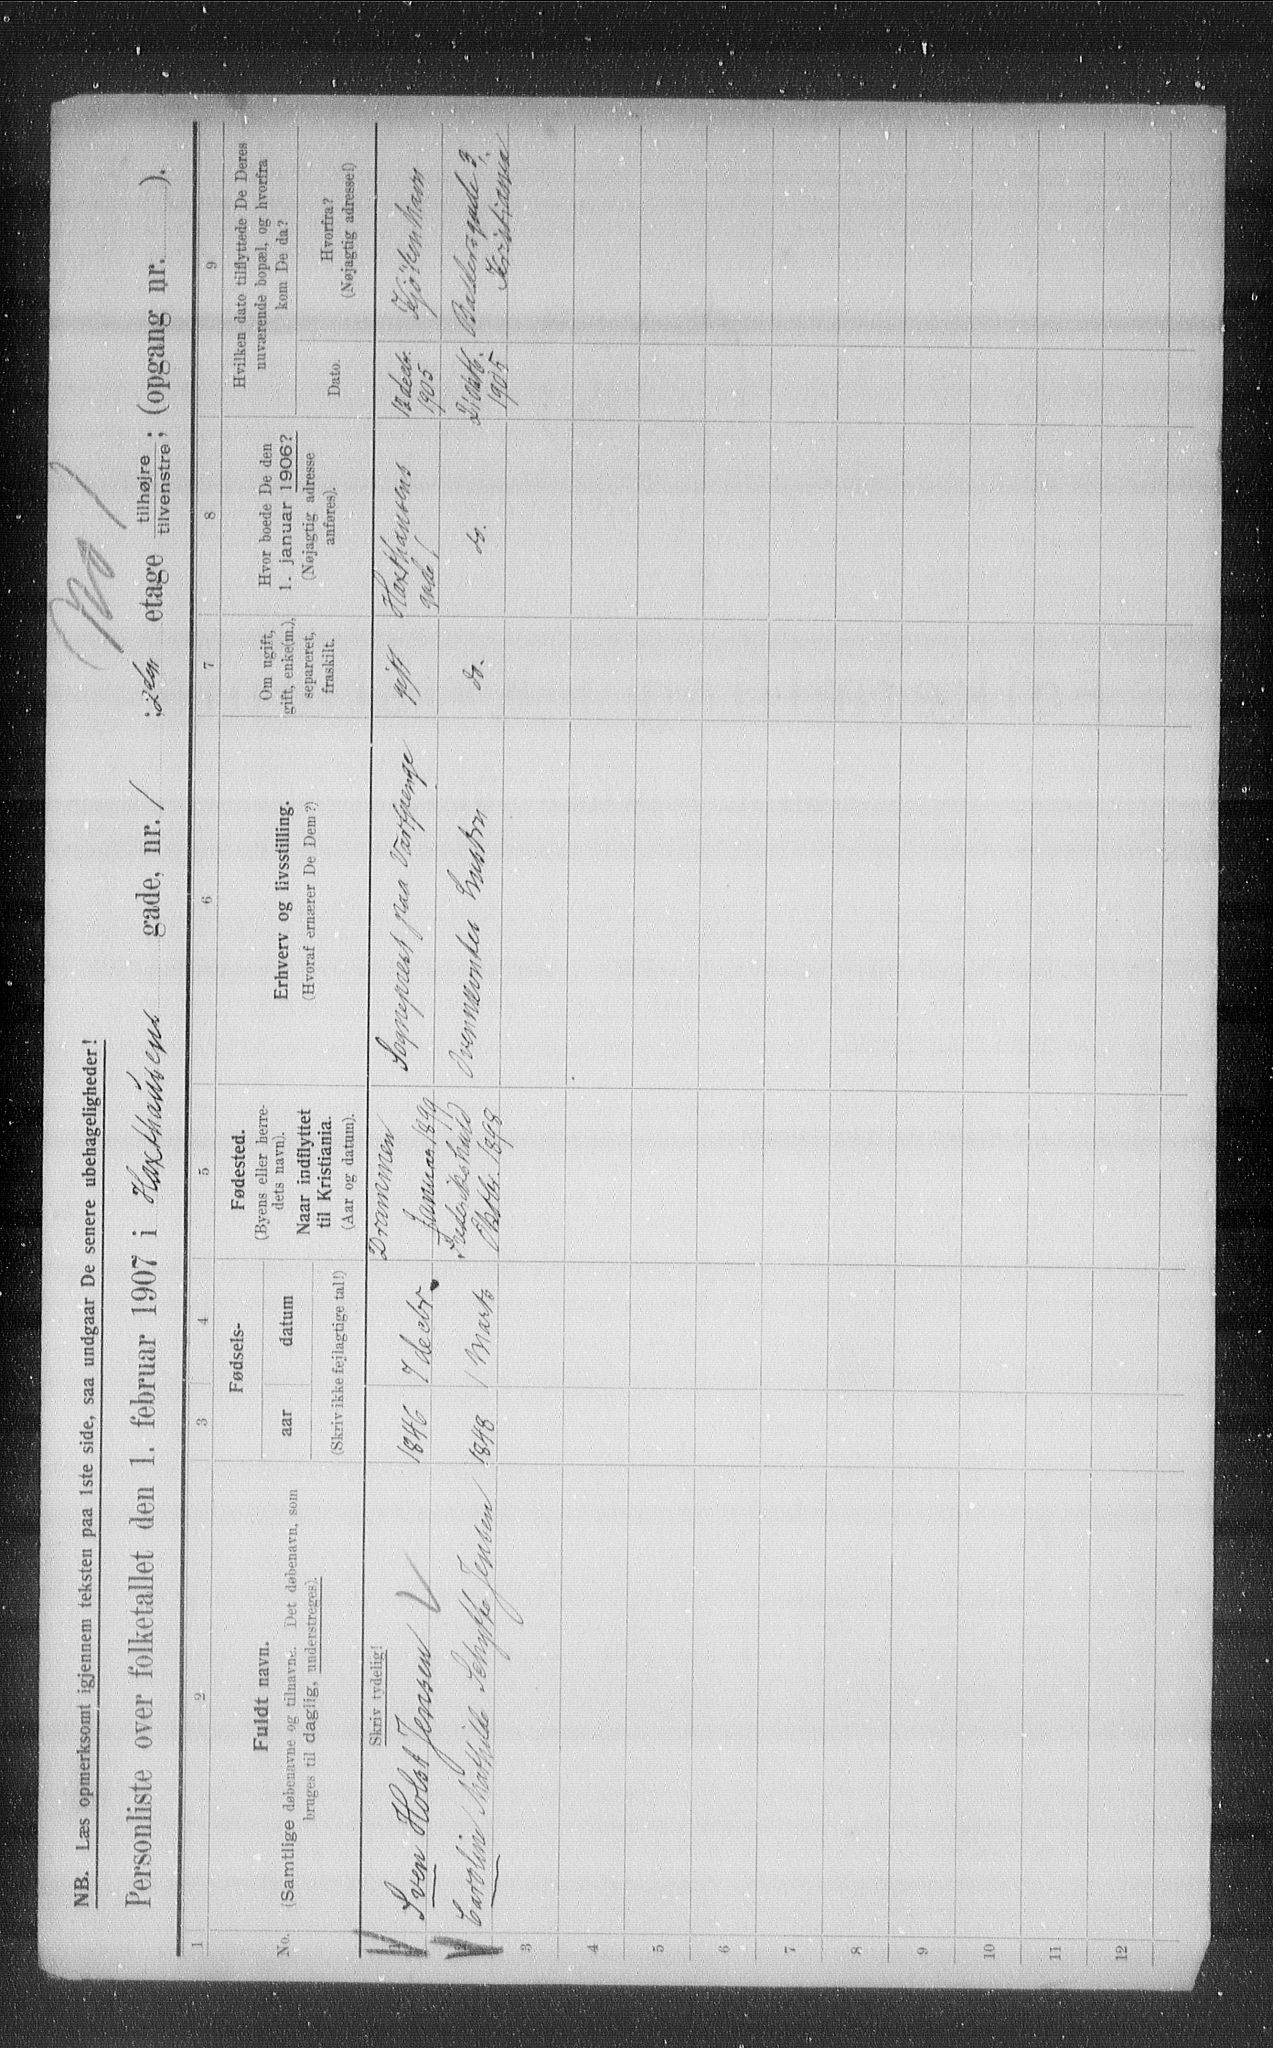 NB. Læs opmerksomt igjennem teksten paa 1ste side, saa undgaar De senere ubehageligheder!
Personliste over folketallet den 1. februar 1907 i Haxthausens gade, nr. 1 ; 2den etage tilhøjre ; (opgang nr. ).
tilvenstre
1 2 3 4 5 6 7 8 9
No.
Fuldt navn.
(Samtlige døbenavne og tilnavne. Det døbenavn, som
bruges til daglig, understreges).
Fødsels-
aar datum
(Skriv ikke fejlagtige tal!)
Fødested.
(Byens eller herre-
dets navn).
Naar indflyttet
til Kristiania.
(Aar og datum).
Erhverv og livsstilling.
(Hvoraf ernærer De Dem?)
Om ugift,
gift, enke(m.),
separeret,
fraskilt.
Hvor boede De den
1. januar 1906?
(Nøjagtig adresse
anføres).
Hvilken dato tilflyttede De Deres
nuværende bopæl, og hvorfra
kom De da?
Dato.
Hvorfra?
(Nøjagtig adresse!)
Skriv tydelig!
Sven Holst Jensen 1846 7 decbr. Drammen
Januar 1899 Sogneprest paa Vartpenge gift Haxthausens
gade 1 12 decbr.
1905 Kjöbenhavn
Caroline Mathilde Schytte Jensen 1848 1 Marts Frederikshald
Oktbr. 1898 Ovennævntes Hustru do. do. 1905 Baldersgade 3,
Kristiania
3
4
5
6
7
8
9
10
11
12